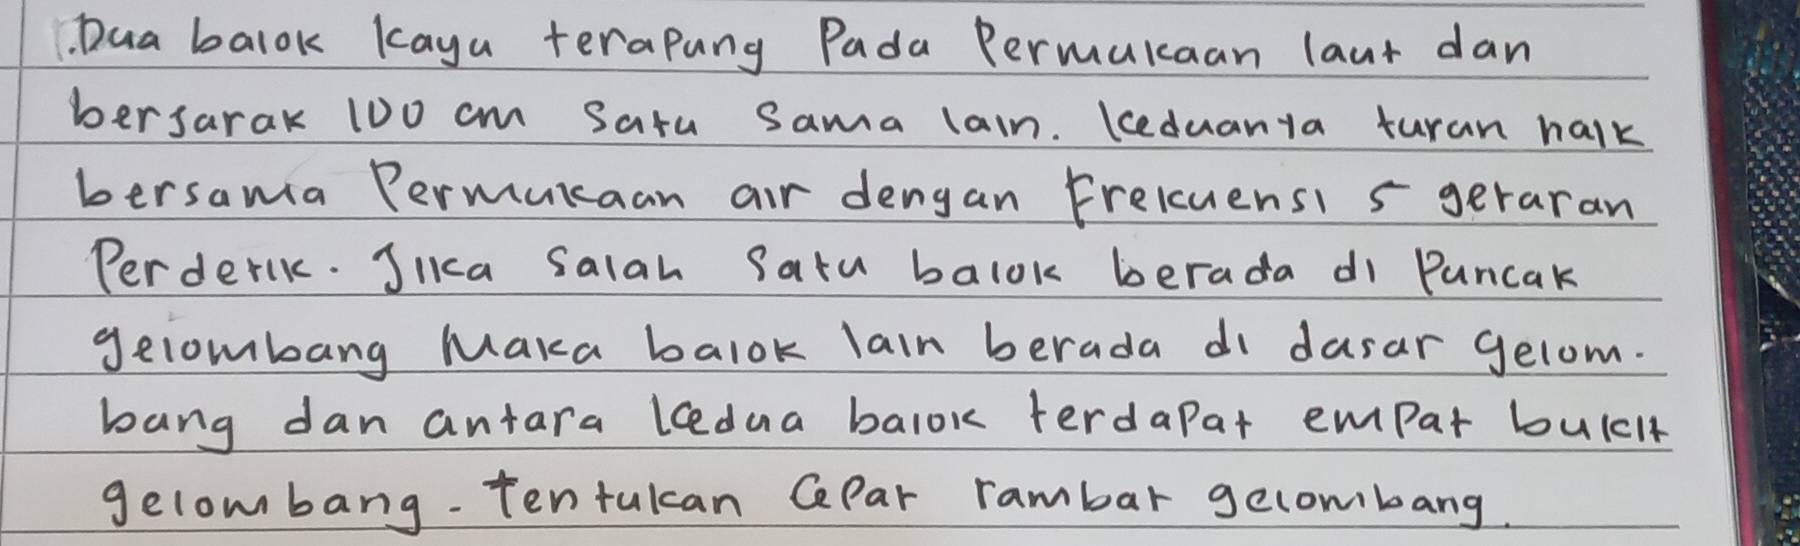 1. Dua balok kayu terapung pada permukaan laut dan
berjarak 100 cm satu sama lain. Keduanya turun naik
bersama permukaan air dengan frekuensi 5 getaran
per detik. Jika salah satu balok berada di puncak
gelombang maka balok lain berada di dasar gelom-
bang dan antara kedua balok terdapat empat bukit
gelombang. Tentukan cepat rambat gelombang.